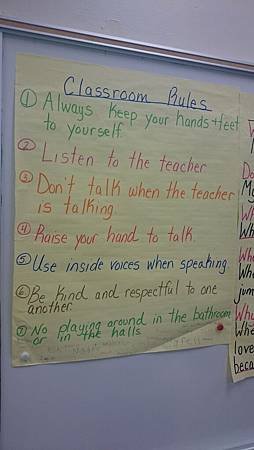 Classroom Rules
① Always keep your hands + feet
to yourself.
② Listen to the teacher
③ Don't talk when the teacher
is talking.
④ Raise your hand to talk.
⑤ Use inside voices when speaking.
⑥ Be kind and respectful to one
another.
⑦ No playing around in the bathroom
or in the halls